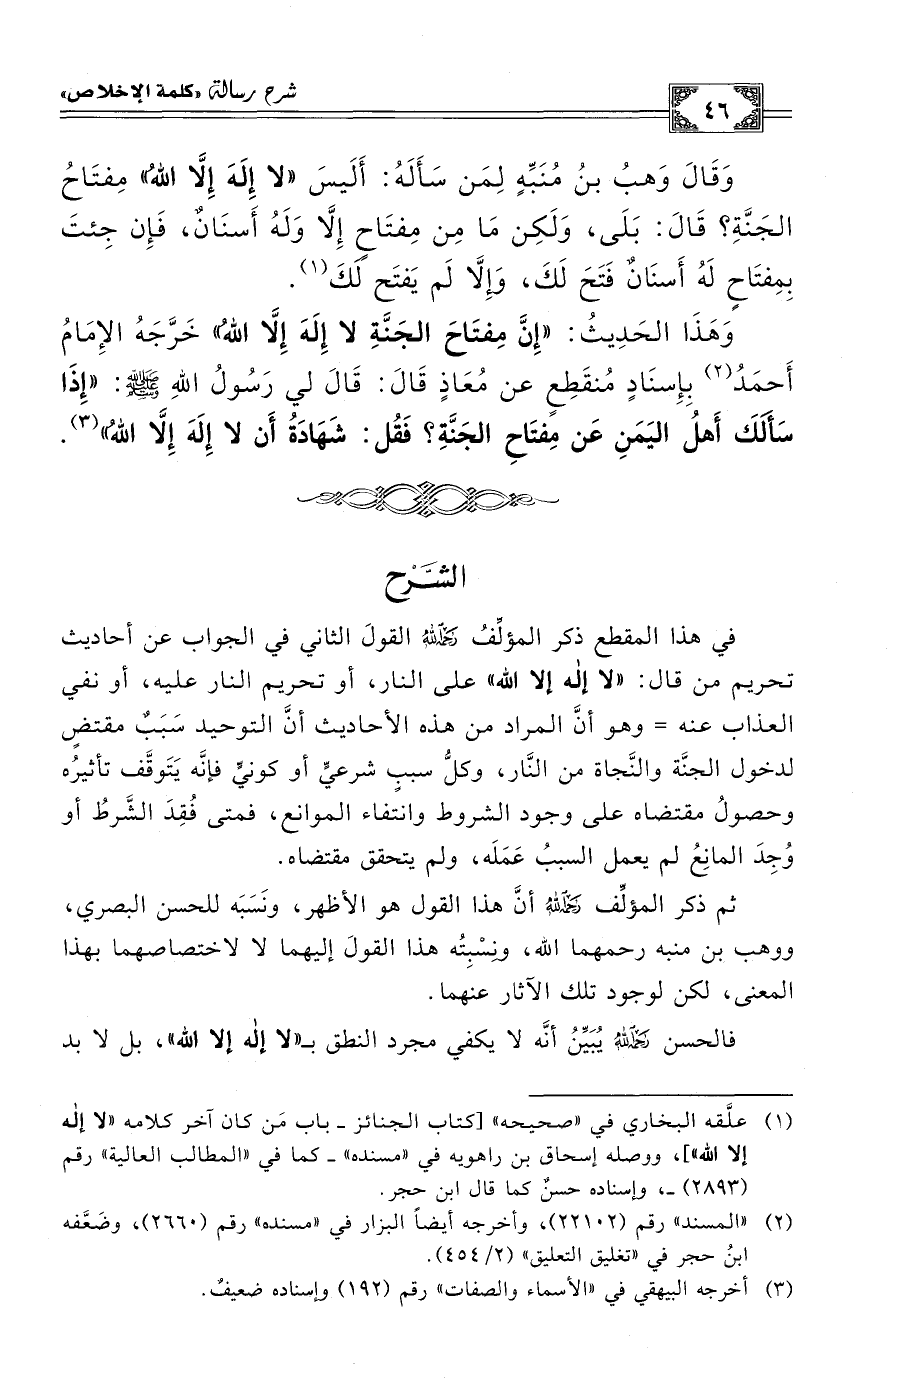 شرح رسالة «كلمة الإخلاص»
٤٦
وَقَالَ وَهبُ بنُ مُنَبِّهٍ لِمَن سَأَلَهُ: أَلَيسَ «لا إِلَهَ إِلَّا اللهُ» مِفتَاحُ
الجَنَّةِ؟ قَالَ: بَلَى، وَلَكِن مَا مِن مِفتَاحٍ إِلَّا وَلَهُ أَسنَانٌ، فَإِن جِئتَ
بِمِفتَاحٍ لَهُ أَسنَانٌ فَتَحَ لَكَ، وَإِلَّا لَم يَفتَح لَكَ(١).
وَهَذَا الحَدِيثُ: «إِنَّ مِفتَاحَ الجَنَّةِ لا إِلَهَ إِلَّا اللهُ» خَرَّجَهُ الإِمَامُ
أَحمَدُ(٢) بِإِسنَادٍ مُنقَطِعٍ عن مُعَاذٍ قَالَ: قَالَ لي رَسُولُ اللهِ ﷺ: «إِذَا
سَأَلَكَ أَهلُ اليَمَنِ عَن مِفتَاحِ الجَنَّةِ؟ فَقُل: شَهَادَةُ أَن لا إِلَهَ إِلَّا اللهُ»(٣).
الشَّرْح
في هذا المقطع ذكر المؤلِّفُ رَحِمَهُ اللهُ القولَ الثاني في الجواب عن أحاديث
تحريم من قال: «لا إلٰه إلا الله» على النار، أو تحريم النار عليه، أو نفي
العذاب عنه = وهو أنَّ المراد من هذه الأحاديث أنَّ التوحيد سَبَبٌ مقتضٍ
لدخول الجنَّة والنَّجاة من النَّار، وكلُّ سببٍ شرعيٍّ أو كونيٍّ فإنَّه يَتَوقَّف تأثيرُه
وحصولُ مقتضاه على وجود الشروط وانتفاء الموانع، فمتى فُقِدَ الشَّرطُ أو
وُجِدَ المانِعُ لم يعمل السببُ عَمَلَه، ولم يتحقق مقتضاه.
ثم ذكر المؤلِّف رَحِمَهُ اللهُ أنَّ هذا القول هو الأظهر، ونَسَبَه للحسن البصري،
ووهب بن منبه رحمهما الله، ونِسْبتُه هذا القولَ إليهما لا لاختصاصهما بهذا
المعنى، لكن لوجود تلك الآثار عنهما.
فالحسن رَحِمَهُ اللهُ يُبَيِّنُ أنَّه لا يكفي مجرد النطق بـ«لا إلٰه إلا الله»، بل لا بد
(١) علَّقه البخاري في «صحيحه» [كتاب الجنائز ـ باب مَن كان آخر كلامه «لا إلٰه
إلا الله»]، ووصله إسحاق بن راهويه في «مسنده» ـ كما في «المطالب العالية» رقم
(٢٨٩٣) ـ، وإسناده حسنٌ كما قال ابن حجر.
(٢) «المسند» رقم (٢٢١٠٢)، وأخرجه أيضاً البزار في «مسنده» رقم (٢٦٦٠)، وضَعَّفه
ابنُ حجر في «تغليق التعليق» (٢/ ٤٥٤).
(٣) أخرجه البيهقي في «الأسماء والصفات» رقم (١٩٢) وإسناده ضعيفٌ.